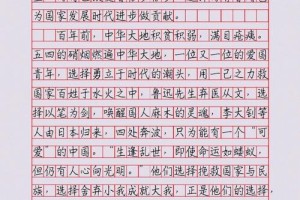 为国家发展时代进步做贡献。
百年前，中华大地积贫积弱，满目疮痍。
五四的硝烟燃遍中华大地，一位又一位的爱国
青年，选择勇立于时代的潮头，用一己之力救
国家百姓于水火之中，鲁迅先生弃医从文，选
择以笔为剑，唤醒国人麻木的灵魂，李大钊等
人由日本归来，四处奔波，只为能有一个“可
爱”的中国。“生逢乱世，即使命运如蝼蚁，
但仍有人心向光明。”他们选择挽救国家与民
族，选择舍弃小我成就大我，正是他们的选择，